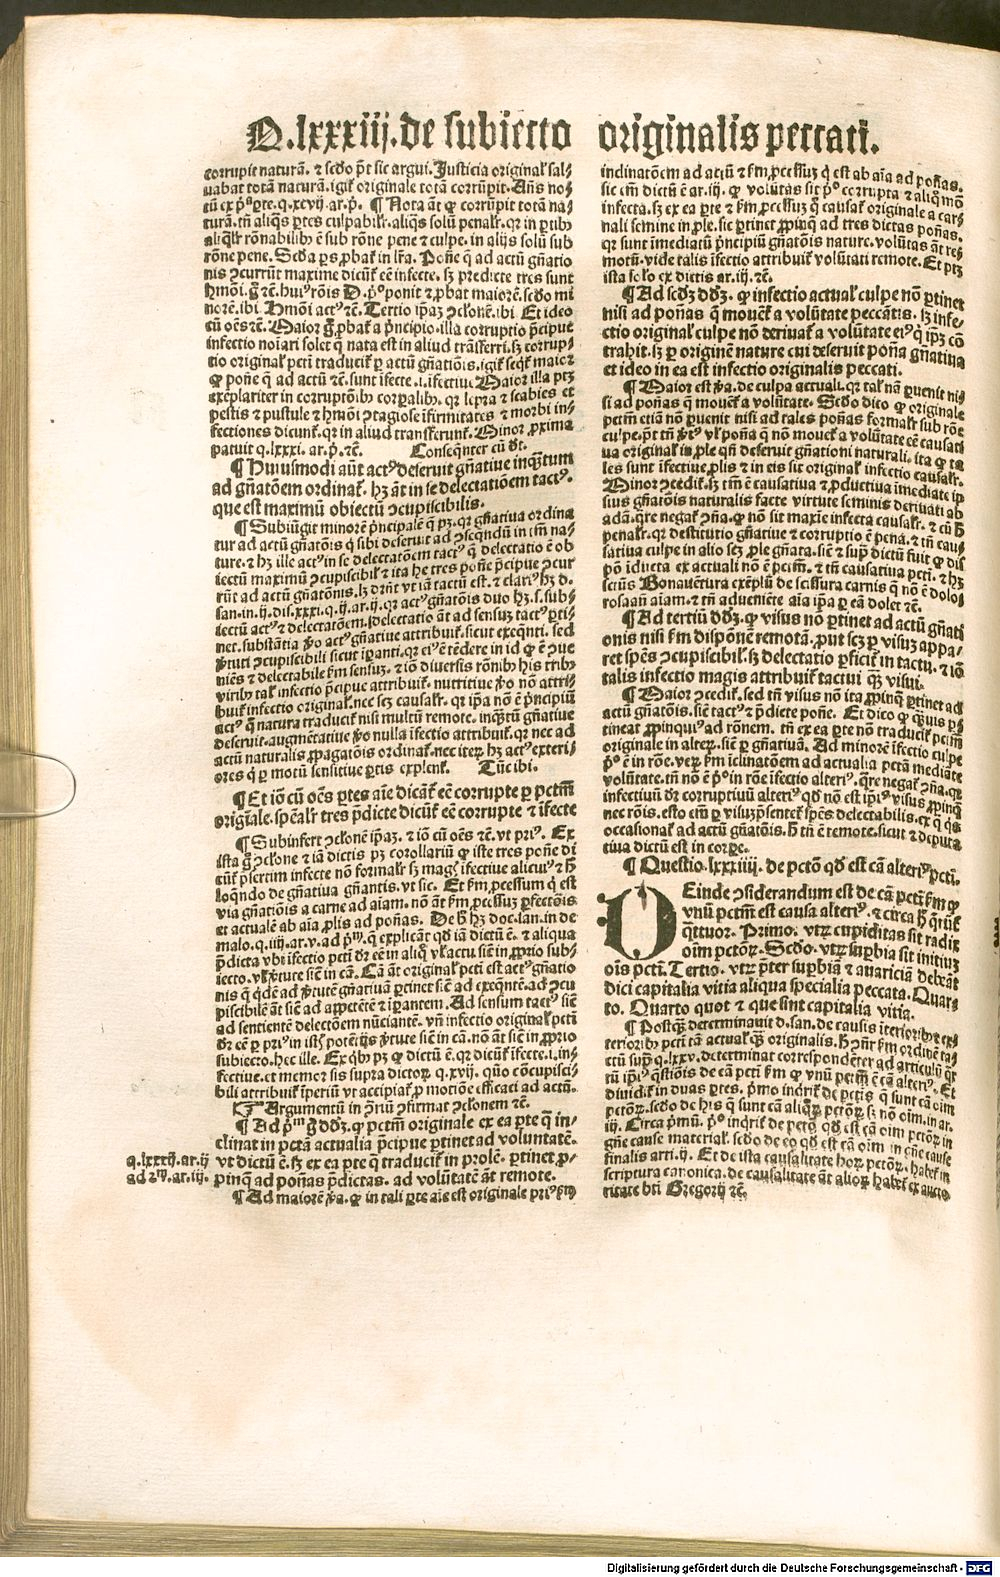 Q.lxxxiij.de subiecto originalis peccati.
corrupit naturā. ⁊ scđo p̄t sic argui. Justicia original̄ sal⸗
uabat totā naturā. igit̄ originale totā corrūpit. Añs no⸗
tū ex p̄ᵃ ꝑte. q. xcvij. ar. p̄. ¶ Nota āt ꝙ corrūpit totā na⸗
turā. tñ aliq̄s ꝑtes culpabilr̄. aliq̄s solū penalr̄. qr in ꝑtibꝰ
aliq̄lr rōnabilibꝰ ē sub rōne pene ⁊ culpe. in alijs solū sub
rōne pene. Scđa ꝑs ꝓbat̄ in lr̄a. Poñe q̄ ad actū gñatio
nis ꝯcurrūt maxime dicūt̄ eē infecte. sꝫ predicte tres sunt
hmōi. g̊ ⁊c̄. huiꝰ rōis D. p̄ᵒ ponit ⁊ ꝓbat maiorē. scđo mi
norē. ibi Hmōi actꝰ ⁊c̄. Tertio ip̄aꝫ ꝯclonē. ibi Et ideo
cū oēs ⁊c̄. Maior g̊ ꝓbat̄ a p̄ncipio. illa corruptio p̄cipue
infectio noīari solet q̄ nata est in aliud trāsferri. sꝫ corrup⸗
tio original̄ pctī traducit̄ ꝑ actū gñatiōis. igit̄ seqt̄ maior
ꝙ poñe q̄ ad actū ⁊c̄. sunt īfecte .i. īfectiue Maior illa ptꝫ
exēplariter in corruptōibꝰ corꝑalibꝰ. qr lepra ⁊ scabies et
pestis ⁊ pustule ⁊ hmōi ꝯtagiose īfirmitates ⁊ morbi in⸗
fectiones dicunt̄. qr in aliud transferunt̄. Minor ꝓxima
patuit q. lxxxi. ar. p̄. ⁊c̄. Conseqn̄ter cū dr̄.
¶ Huiusmodi aūt actꝰ deseruit gñatiue inqͣtum
ad gñatōem ordinat̄. hꝫ āt in se delectatiōem tactꝰ.
que est maximū obiectū ꝯcupiscibilis.
¶ Subiūgit minorē p̄ncipalē q̄ pꝫ. qr gñatiua ordina
tur ad actū gñatōis q̄ sibi deseruit ad ꝯseqn̄dū in cm̄ na⸗
ture. ⁊ hꝫ ille actꝰ in se delectatōem tactꝰ q̄ delectatio ē ob
iectū maximū ꝯcupiscibil̄ ⁊ ita he tres poñe p̄cipue ꝯcur
rūt ad actū gñatōnis.
san. in. ij. dis. xxxi. q. ij. ar. ij. qr actꝰ gñatōis duo hꝫ. s. sub⸗
iectū actꝰ ⁊ delectatōem. delectatio āt ad sensuꝫ tactꝰ ꝑti⸗
net. substātia ꝟo actꝰ gñatiue attribuit̄. sicut exeqn̄ti. sed
ꝟtuti ꝯcupiscibili sicut īꝑanti.
niēs ⁊ delectabile ẜm sensuꝫ. ⁊ iō diuersis rōnibꝰ his tribꝰ
viribꝰ tal̄ infectio p̄cipue attribuit̄. nutritiue ꝟo nō attri⸗
buit̄ infectio original̄. nec seꝫ causalr̄. qr ip̄a nō ē p̄ncipiū
actꝰ q̄ natura traducit̄ nisi multū remote. inqͣtū gñatiue
deseruit. augmētatiue ꝟo nulla īfectio attribuit̄. qr nec ad
actū naturalis ꝓpagatōis ordinat̄. nec iterꝫ hꝫ actꝰ exteri⸗
ores q̄ ꝑ motū sensitiue ꝑtis explent̄. Tūc ibi.
¶ Et iō cū oēs ꝑtes aīe dicāt̄ eē corrupte ꝑ pctm̄
origīale. spēalr̄ tres p̄dicte dicūt̄ eē corrupte ⁊ īfecte
¶ Subinfert ꝯclonē ip̄aꝫ. ⁊ iō cū oēs ⁊c̄. vt priꝰ. Ex
ista g̊ ꝯclone ⁊ iā dictis pꝫ corollariū ꝙ iste tres poñe di
cūt̄ p̄sertim infecte nō formalr̄ sꝫ magꝭ īfectiue alicuiꝰ ⁊ h̄
loqn̄do de gñatiua gñantis. vt sic. Et ẜm ꝓcessum q̄ est
via gñatiōis a carne ad aīam. nō āt ẜm ꝓcessuꝫ ꝑfectōis
et actualē ab aīa ꝓlis ad poñas. De h̊ hꝫ doc. san. in de
malo. q. iiij. ar. v. ad p̄ᵐ. q̄ explicāt qđ iā dictū ē. ⁊ aliqua
p̄dicta vbi īfectio pctī dr̄ eē in aliq̊ vl̓ actu siē in ꝓprio sub⸗
iecto. vl̓ ꝟtute siē in cā. Cā āt original̄ pctī est actꝰ gñatio
nis q̄ q̇dē ad ꝟtutē gñatiuā ꝑtinet siē ad exeqn̄tē. ad ꝯcu
piscibilē āt siē ad appetētē ⁊ īꝑantem. Ad sensum tactꝰ siē
ad sentientē delectōem nūciantē. vñ infectio original̄ pctī
dr̄ eē ꝑ priꝰ in istꝭ potētijs ꝟtute siē in cā. nō āt siē in ꝓprio
subiecto. hec ille. Ex q̇bꝰ pꝫ ꝙ dictū ē. qr dicūt̄ īfecte. i. in⸗
fectiue. et memor sis supra dictoꝝ q. xvij. quō cōcupisci⸗
bili attribuit̄ īperiū vt accipiat̄ ꝑ motiōe efficaci ad actū.
☞ Argumentū in ꝯ̄riū ꝯfirmat ꝯclonem ⁊c̄.
¶ Ad p̄ᵐ g̊ dꝫ. ꝙ pctm̄ originale ex ea ꝑte q̄ in⸗
clinat in pctā actualia p̄cipue ꝑtinet ad voluntatē.
vt dictū ē. sꝫ ex ea ꝑte q̄ traducit̄ in prolē. ꝑtinet ꝓ⸗
pinq̄ ad poñas p̄dictas. ad volūtatē āt remote.
¶ Ad maiorē ꝟa. ꝙ in tali ꝑte aīe est originale priꝰ ẜm
q. lxxxij. ar. ij
ad 2ᵐ. ar. iij.
inclinatōem ad actū ⁊ ẜm ꝓcessuꝫ q̄ est ab aīa ad poñas.
sic em̄ dictū ē ar. ij. ꝙ volūtas sit p̄ᵒ corrupta ⁊ aliq̊ mō
infecta. sꝫ ex ea ꝑte ⁊ ẜm ꝓcessuꝫ q̊ causat̄ originale a car⸗
nali semine in ꝓle. sic ꝑtinet ꝓpinq̄ ad tres dictas poñas.
qr sunt īmediatū p̄ncipiū gñatōnis nature. volūtas āt re⸗
motū. vide talis īfectio attribuit̄ volūtati remote. Et ptꝫ
ista solo ex dictis ar. iij. ⁊c̄.
¶ Ad scđꝫ dꝫ. ꝙ infectio actual̄ culpe nō ꝑtinet
nisi ad poñas q̄ mouēt̄ a volūtate peccātis. sꝫ infe⸗
ctio original̄ culpe nō deriuat̄ a volūtate eiꝰ q̇ ip̄ꝫ cō
trahit. sꝫ ꝑ originē nature cui deseruit poñā gñatiua
et ideo in ea est infectio originalis peccati.
¶ Maior est ꝟa. de culpa actuali. qr tal̄ nō ꝓuenit ni⸗
si ad poñas q̄ mouēt̄ a volūtate. Scđo dico ꝙ originale
pctm̄ etiā nō ꝓuenit nisi ad tales poñas formalr̄ sub rōe
culpe.
ua original̄ in ꝓle qñ deseruit gñationi naturali. ita ꝙ ta
les sunt īfectiue ꝓlis ⁊ in eis sic original̄ infectio causalr̄.
Minor ꝯcedit̄. sꝫ tm̄ ē causatiua ⁊ ꝓductiua īmediate ip
sius gñatōis naturalis facte virtute seminis deriuati ab
adā. qͣre negat̄ ꝯña. ꝙ nō sit maxīe infecta causalr̄. ⁊ cū h̊
penalr̄. qr destitutio gñatiue ⁊ corruptio ē pena. ⁊ tñ cau⸗
satiua culpe in alio seꝫ ꝓle gñata. siē ⁊ supᷓ dictū fuit ꝙ dis
pō īducta ex actuali nō ē pctm̄. ⁊ tñ causatiua pctī. ⁊ hꝫ
scīus Bonauētura exēplū de scissura carnis q̄ nō ē dolo⸗
rosa añ aīam. ⁊ tñ adueniēte aīa ip̄a ꝑ eā dolet ⁊c̄.
¶ Ad tertiū dꝫ. ꝙ visus nō ꝑtinet ad actū gñati
onis nisi ẜm disponē remotā. ꝓut scꝫ ꝑ visuꝫ appa⸗
ret spēs ꝯcupiscibil̄. sꝫ delectatio ꝑficit̄ in tactu. ⁊ iō
talis infectio magis attribuit̄ tactui qͣꝫ visui.
¶ Maior ꝯcedit̄. sed tñ visus nō ita ꝓpinq̄ ꝑtinet ad
actū gñatōis. siē tactꝰ ⁊ p̄dicte poñe. Et dico ꝙ qͣuis ꝑ⸗
tineat ꝓpinquiꝰ ad rōnem. tñ ex ea ꝑte nō traducit̄ pctm̄
originale in alteꝝ. siē ꝑ gñatiuā. Ad minorē īfectio culpe
p̄ᵒ ē in rōe. veꝝ ẜm īclinatōem ad actualia pctā mediāte
volūtate. tñ nō ē p̄ᵒ in rōe īfectio alteriꝰ. qͣre negat̄ ꝯña. qr
infectiuū dr̄ corruptiuū alteriꝰ qđ nō est ip̄iꝰ visus ꝓpinq̄
nec rōnis.
occasionat̄ ad actū gñatōis. h̄ tñ ē remote. sicut ⁊ deputa
tiua dictū est in corꝑe.
¶ Questio. lxxxiiij. de pctō qđ est cā alteriꝰ pctī.
DEinde ꝯsiderandum est de cā pctī ẜm ꝙ
vnū pctm̄ est causa alteriꝰ. ⁊ circa h̊ q̄rūt̄
qͣttuor. Primo. vtꝝ cupiditas sit radix
oīm pctōꝝ. Scđo. vtꝝ suꝑbia sit initiuꝫ
oīs pctī. Tertio. vtꝝ p̄ter suꝑbiā ⁊ auariciā debeāt
dici capitalia vitia aliqua specialia peccata. Quar⸗
to. Quarto quot ⁊ que sint capitalia vitia.
¶ Postqͣꝫ determinauit d. san. de causis īterioribꝰ ⁊ ex⸗
terioribꝰ pctī tā actual̄ qͣꝫ originalis. h̊ ꝯñr ẜm ordinē tac
tū supᷓ q. lxxv. determinat correspondēter ad articulū qr̄
tū ip̄iꝰ q̄stiōis de cā pctī ẜm ꝙ vnū pctm̄ ē cā alteriꝰ. Et
diuidit̄ in duas ꝑtes. p̄mo inqrit̄ de pctis q̄ sunt cā oīm
pctōꝝ. scđo de his q̄ sunt cā aliq̊ꝝ pctōꝝ sꝫ nō oīm. in ar.
iij. Circa p̄mū. p̄ᵒ inqrit̄ de pctō. qđ est cā oīm pctōꝝ in
gñe cause material̄. scđo de eo qđ est cā oīm in gñe cause
finalis arti. ij. Et de ista causalitate hoꝝ pctōꝝ. habet̄ in
scriptura canonica. de causalitate āt alioꝝ habet̄ ex aucto
ritate btī Gregorij ⁊c̄.
Digitalisierung gefördert durch die Deutsche Forschungsgemeinschaft - DFG